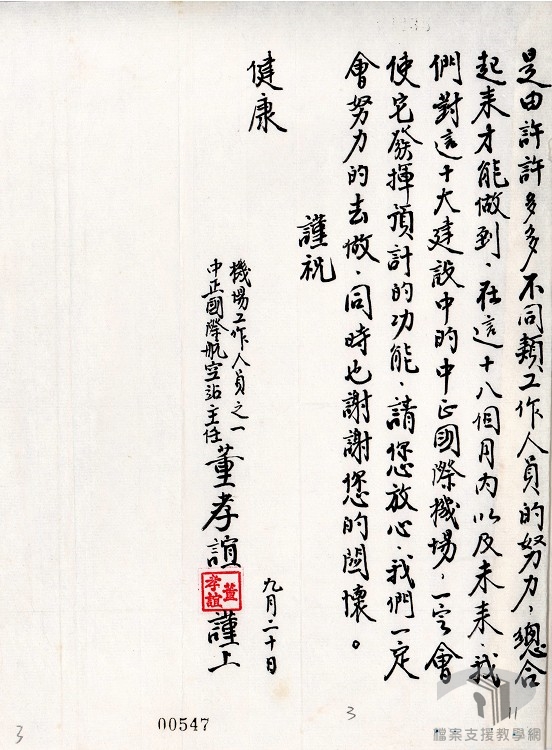 是由許許多多不同類工作人員的努力，總合
起來才能做到、在這十八個月內以及未來、我
們對這十大建設中的中正國際機場，一定會
使它發揮預計的功能、請您放心、我們一定
會努力的去做、同時也謝謝您的關懷。
謹祝
健康
機場工作人員之一
中正國際航空站主任 董孝誼 謹上
董孝誼
九月二十日
00547
3
3
11
檔案支援教學網